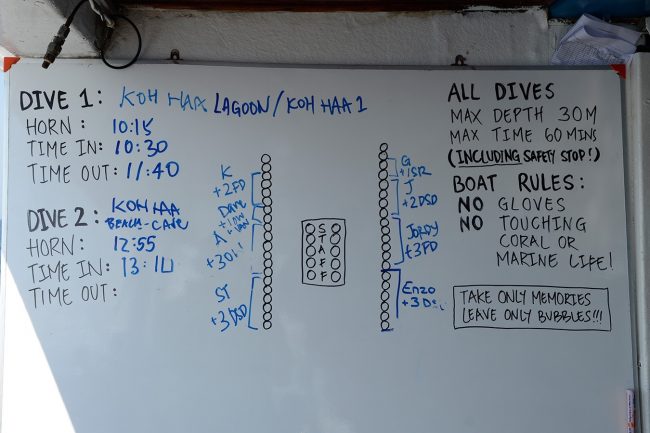 DIVE 1: KOH HAA LAGOON/KOH HAA 1
HORN: 10:15
TIME IN: 10:30
TIME OUT: 11:40
DIVE 2: KOH HAA
BEACH-CAVE
HORN: 12:55
TIME IN: 13:10
TIME OUT:
K
+2FD
Dave
A
ST
+3DSD
STAFF
G
J
+2DSD
JORDY
+3FD
Enzo
ALL DIVES
MAX DEPTH 30M
MAX TIME 60 MINS
(INCLUDING SAFETY STOP!)
BOAT RULES:
NO GLOVES
NO TOUCHING
CORAL OR
MARINE LIFE!
TAKE ONLY MEMORIES
LEAVE ONLY BUBBLES!!!